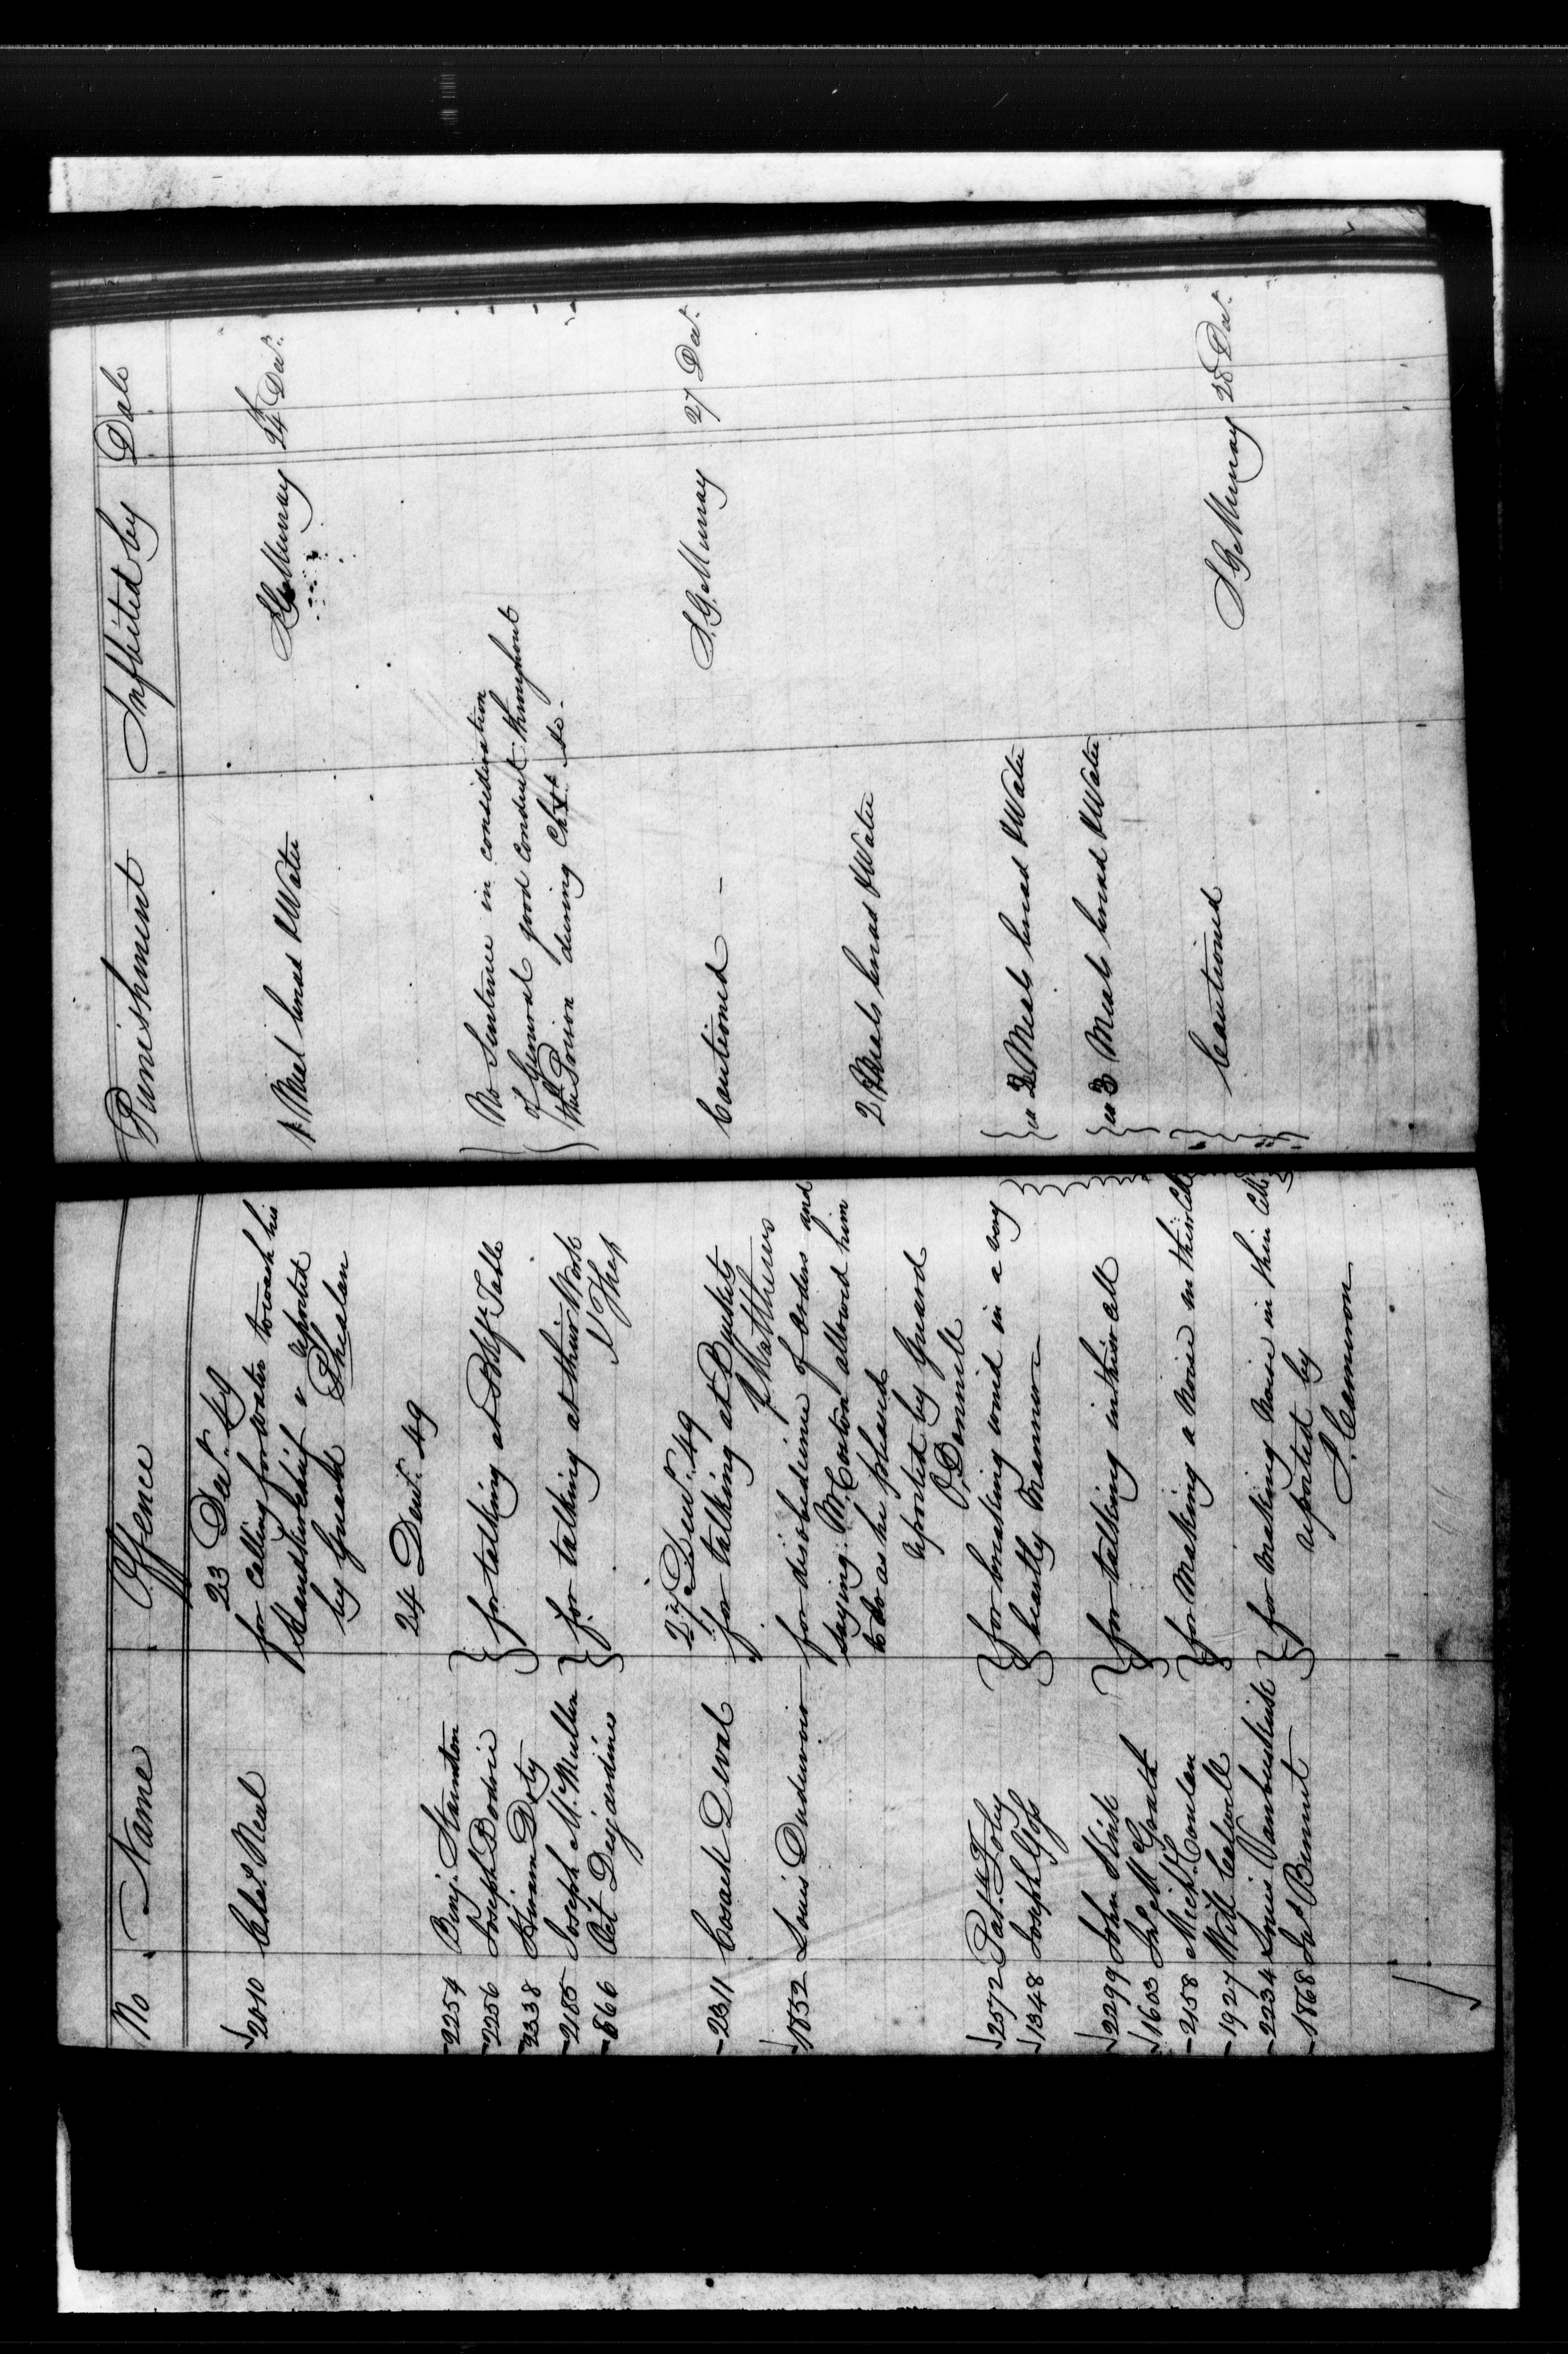 No Name Offence Punishment Inflicted by Date
23 Decr. 49
2010 Chas. Neal for Calling for water to wash his 1 Meal bread & Water S G Murray 24 Decr.
Handkerchief reported
by Guard Phealan
24 Decr. 49
2254 Benj. Staunton
2256 Joseph Bodrie for talking at Table No Sentence in consideration
2338 Hiram Doty of General good Conduct throughout
2185 Joseph McMullen for talking at their Work the Prison during
566 Oct Desjardines
27 Decr. 49
2311 Cosack Deval for talking at Buckets Cautioned - S. G. Murray 27 Decr.
J Matthews
1852 Louis Dudevoir for disobedience of orders and 2 Meals bread & Water
saying Mr. Costen allowed him
to do as he pleased
reported by Guard
O'Donnell
2572 Patk. Foley for breaking wind in a very ea 2 Meals bread & Water
1348 Joseph Goss beastly Manner
2299 John Kirk for talking in their cell ea 3 Meals bread & Water
1603 Jas McGrath
2158 Michl. Conlan for Making a Noise in their Cell Cautioned S G Murray 28 Decr.
1927 Will Calwell
2234 Louis Vanbuskirk for making Noise in their Cell
1868 Jas Bennet reported by
J. Cameron